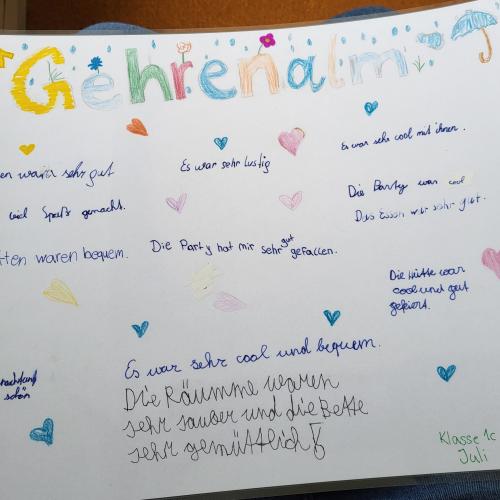 Gehrenalm
Es war sehr cool mit ihnen.
sehr gut
Es war sehr lustig
Die Party war cool
viel Spaß gemacht.
Das Essen war sehr gut.
waren bequem.
Die Party hat mir sehr gut gefallen.
Die Hütte war
cool und gut
gefiert.
Es war sehr cool und bequem.
schön
Die Räumme waren
sehr sauber und die Bette
sehr gemüttlich!
Klasse 1c
Juli